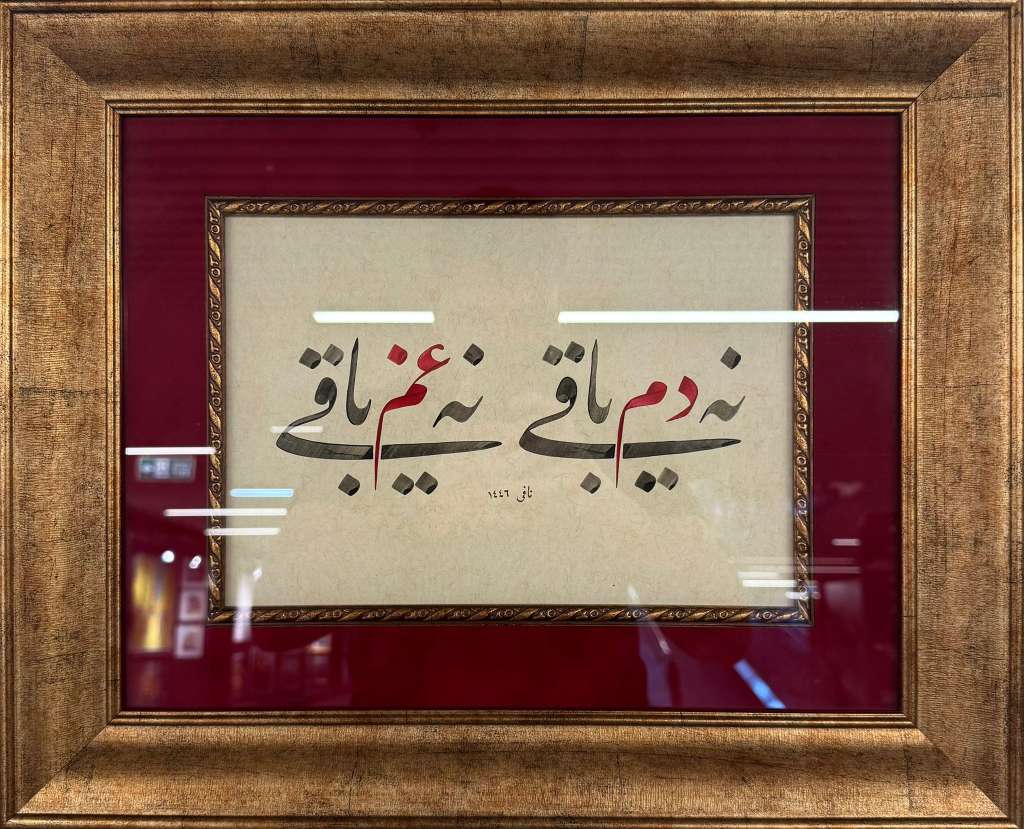 نه دم باقی نه غم باقی
نافی ١٤٤٦